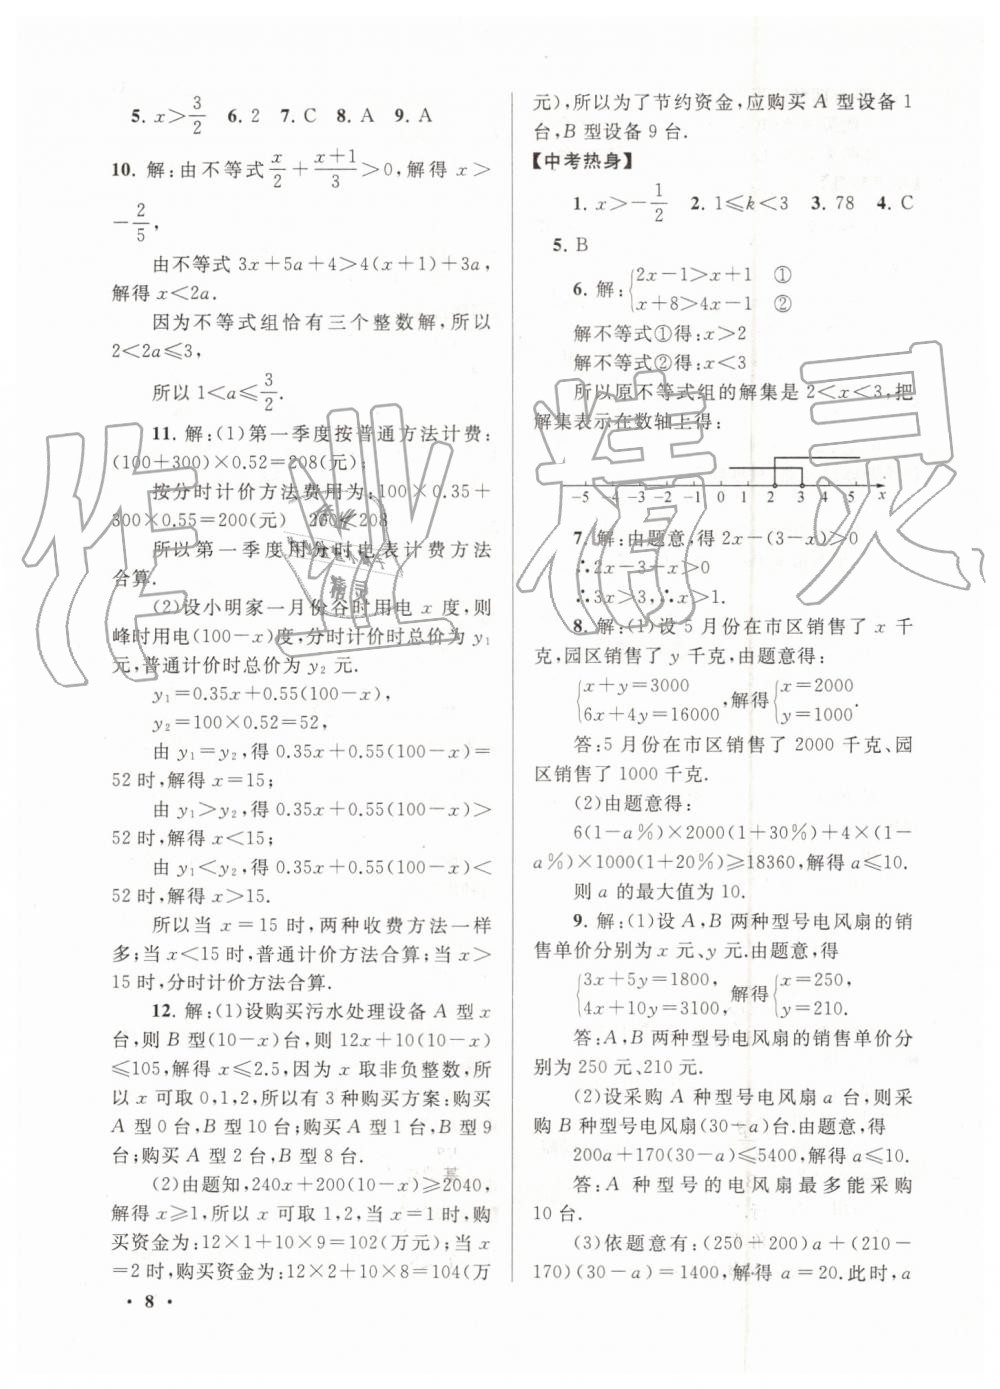 5. x>3/2　6. 2　7. C　8. A　9. A
10. 解:由不等式x/2+(x+1)/3>0,解得 x>
-2/5,
由不等式 3x+5a+4>4(x+1)+3a,
解得 x<2a.
因为不等式组恰有三个整数解,所以
2<2a≤3,
所以 1<a≤3/2.
11. 解:(1)第一季度按普通方法计费:
(100+300)×0.52=208(元);
按分时计价方法费用为:100×0.35+
300×0.55=200(元)　200<208
所以第一季度用分时电表计费方法
合算.
(2)设小明家一月份谷时用电 x 度,则
峰时用电(100-x)度,分时计价时总价为 y₁
元,普通计价时总价为 y₂ 元.
y₁=0.35x+0.55(100-x),
y₂=100×0.52=52,
由 y₁=y₂,得 0.35x+0.55(100-x)=
52 时,解得 x=15;
由 y₁>y₂,得 0.35x+0.55(100-x)>
52 时,解得 x<15;
由 y₁<y₂,得 0.35x+0.55(100-x)<
52 时,解得 x>15.
所以当 x=15 时,两种收费方法一样
多;当 x<15 时,普通计价方法合算;当 x>
15 时,分时计价方法合算.
12. 解:(1)设购买污水处理设备 A 型 x
台,则 B 型(10-x)台,则 12x+10(10-x)
≤105,解得 x≤2.5,因为 x 取非负整数,所
以 x 可取 0,1,2,所以有 3 种购买方案:购买
A 型 0 台,B 型 10 台;购买 A 型 1 台,B 型 9
台;购买 A 型 2 台,B 型 8 台.
(2)由题知,240x+200(10-x)≥2040,
解得 x≥1,所以 x 取 1,2,当 x=1 时,购
买资金为:12×1+10×9=102(万元);当 x
=2 时,购买资金为:12×2+10×8=104(万
元),所以为了节约资金,应购买 A 型设备 1
台,B 型设备 9 台.
【中考热身】
1. x>-1/2　2. 1≤k<3　3. 78　4. C
5. B
6. 解:{2x-1>x+1　①
x+8>4x-1　②
解不等式①得:x>2
解不等式②得:x<3
所以原不等式组的解集是 2<x<3,把
解集表示在数轴上得:
-5 -4 -3 -2 -1 0 1 2 3 4 5 x
7. 解:由题意,得 2x-(3-x)>0
∴2x-3-x>0
∴3x>3,∴x>1.
8. 解:(1)设 5 月份在市区销售了 x 千
克,园区销售了 y 千克,由题意得:
{x+y=3000
6x+4y=16000,解得{x=2000
y=1000.
答:5 月份在市区销售了 2000 千克、园
区销售了 1000 千克.
(2)由题意得:
6(1-a%)×2000(1+30%)+4×(1-
a%)×1000(1+20%)≥18360,解得 a≤10.
则 a 的最大值为 10.
9. 解:(1)设 A,B 两种型号电风扇的销
售单价分别为 x 元、y 元.由题意,得
{3x+5y=1800,
4x+10y=3100,解得{x=250,
y=210.
答:A,B 两种型号电风扇的销售单价分
别为 250 元、210 元.
(2)设采购 A 种型号电风扇 a 台,则采
购 B 种型号电风扇(30-a)台.由题意,得
200a+170(30-a)≤5400,解得 a≤10.
答:A 种型号的电风扇最多能采购
10 台.
(3)依题意有:(250-200)a+(210-
170)(30-a)=1400,解得 a=20.此时,a
· 8 ·
作业精灵
作业
精灵